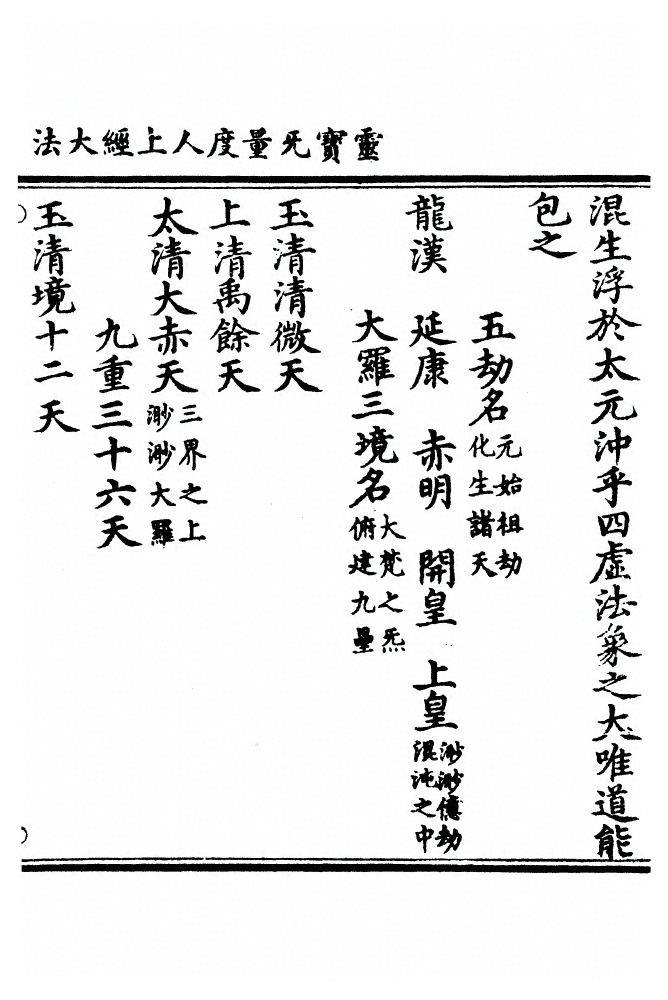 靈寶旡量度人上經大法
混生浮於太元沖乎四虛法象之大唯道能
包之
五劫名元始祖劫化生諸天
龍漢 延康 赤明 開皇 上皇渺渺億劫混沌之中
大羅三境名大梵之炁俯建九壘
玉清清微天
上清禹餘天
太清大赤天三界之上渺渺大羅
九重三十六天
玉清境十二天